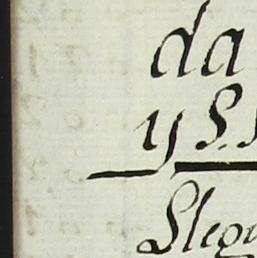 da
y S.S
Slegu